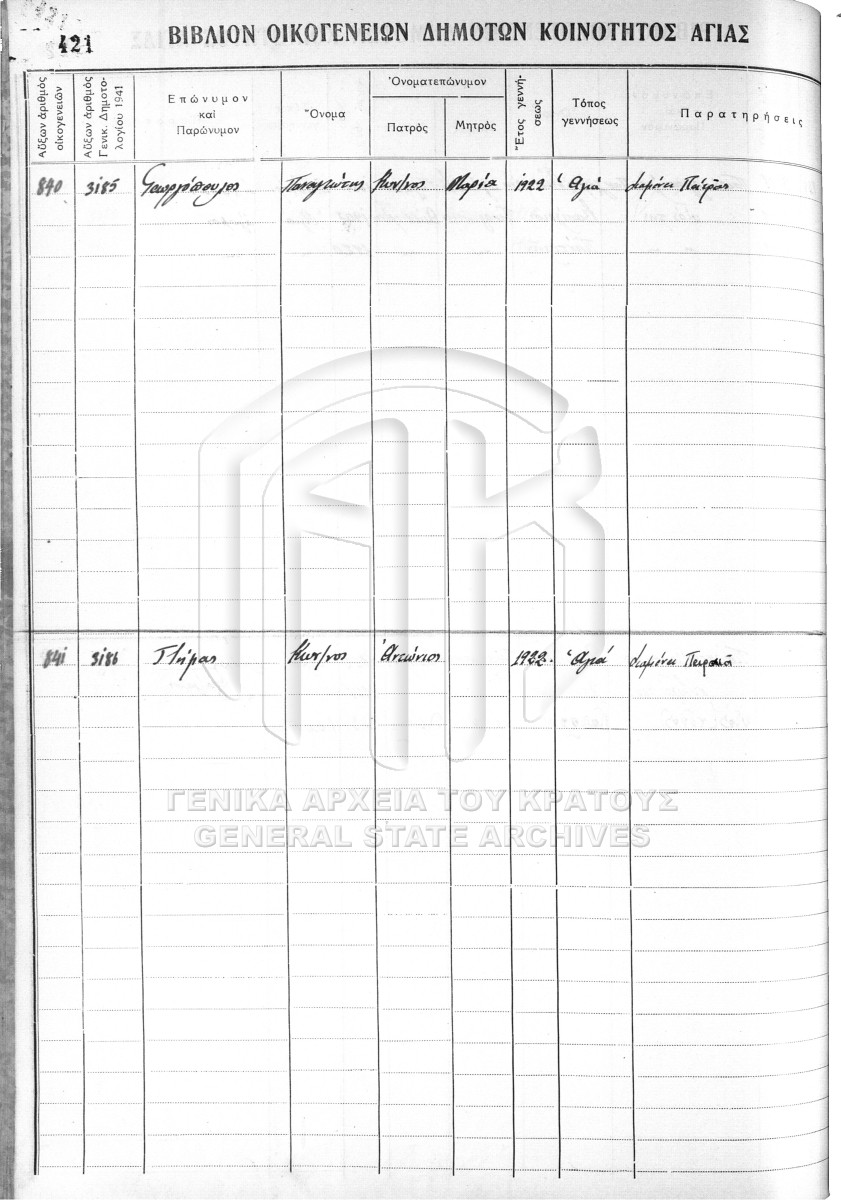 421
ΒΙΒΛΙΟΝ ΟΙΚΟΓΕΝΕΙΩΝ ΔΗΜΟΤΩΝ ΚΟΙΝΟΤΗΤΟΣ ΑΓΙΑΣ
Αὔξων ἀριθμὸς οἰκογενειῶν
Αὔξων ἀριθμὸς Γενικ. Δημοτολογίου 1941
Ἐπώνυμον
καὶ
Παρώνυμον
Ὄνομα
Ὀνοματεπώνυμον
Πατρὸς
Μητρὸς
Ἔτος γεννήσεως
Τόπος
γεννήσεως
Παρατηρήσεις
840 3185 Γεωργόπουλος Παναγιώτης Κων/νος Μαρία 1922 Ἁγιά Διαμένει Πάτρας
841 3186 Κων/νος Ἀντώνιος 1922. Ἁγιά Διαμένει Πειραιᾶ
ΓΕΝΙΚΑ ΑΡΧΕΙΑ ΤΟΥ ΚΡΑΤΟΥΣ
GENERAL STATE ARCHIVES